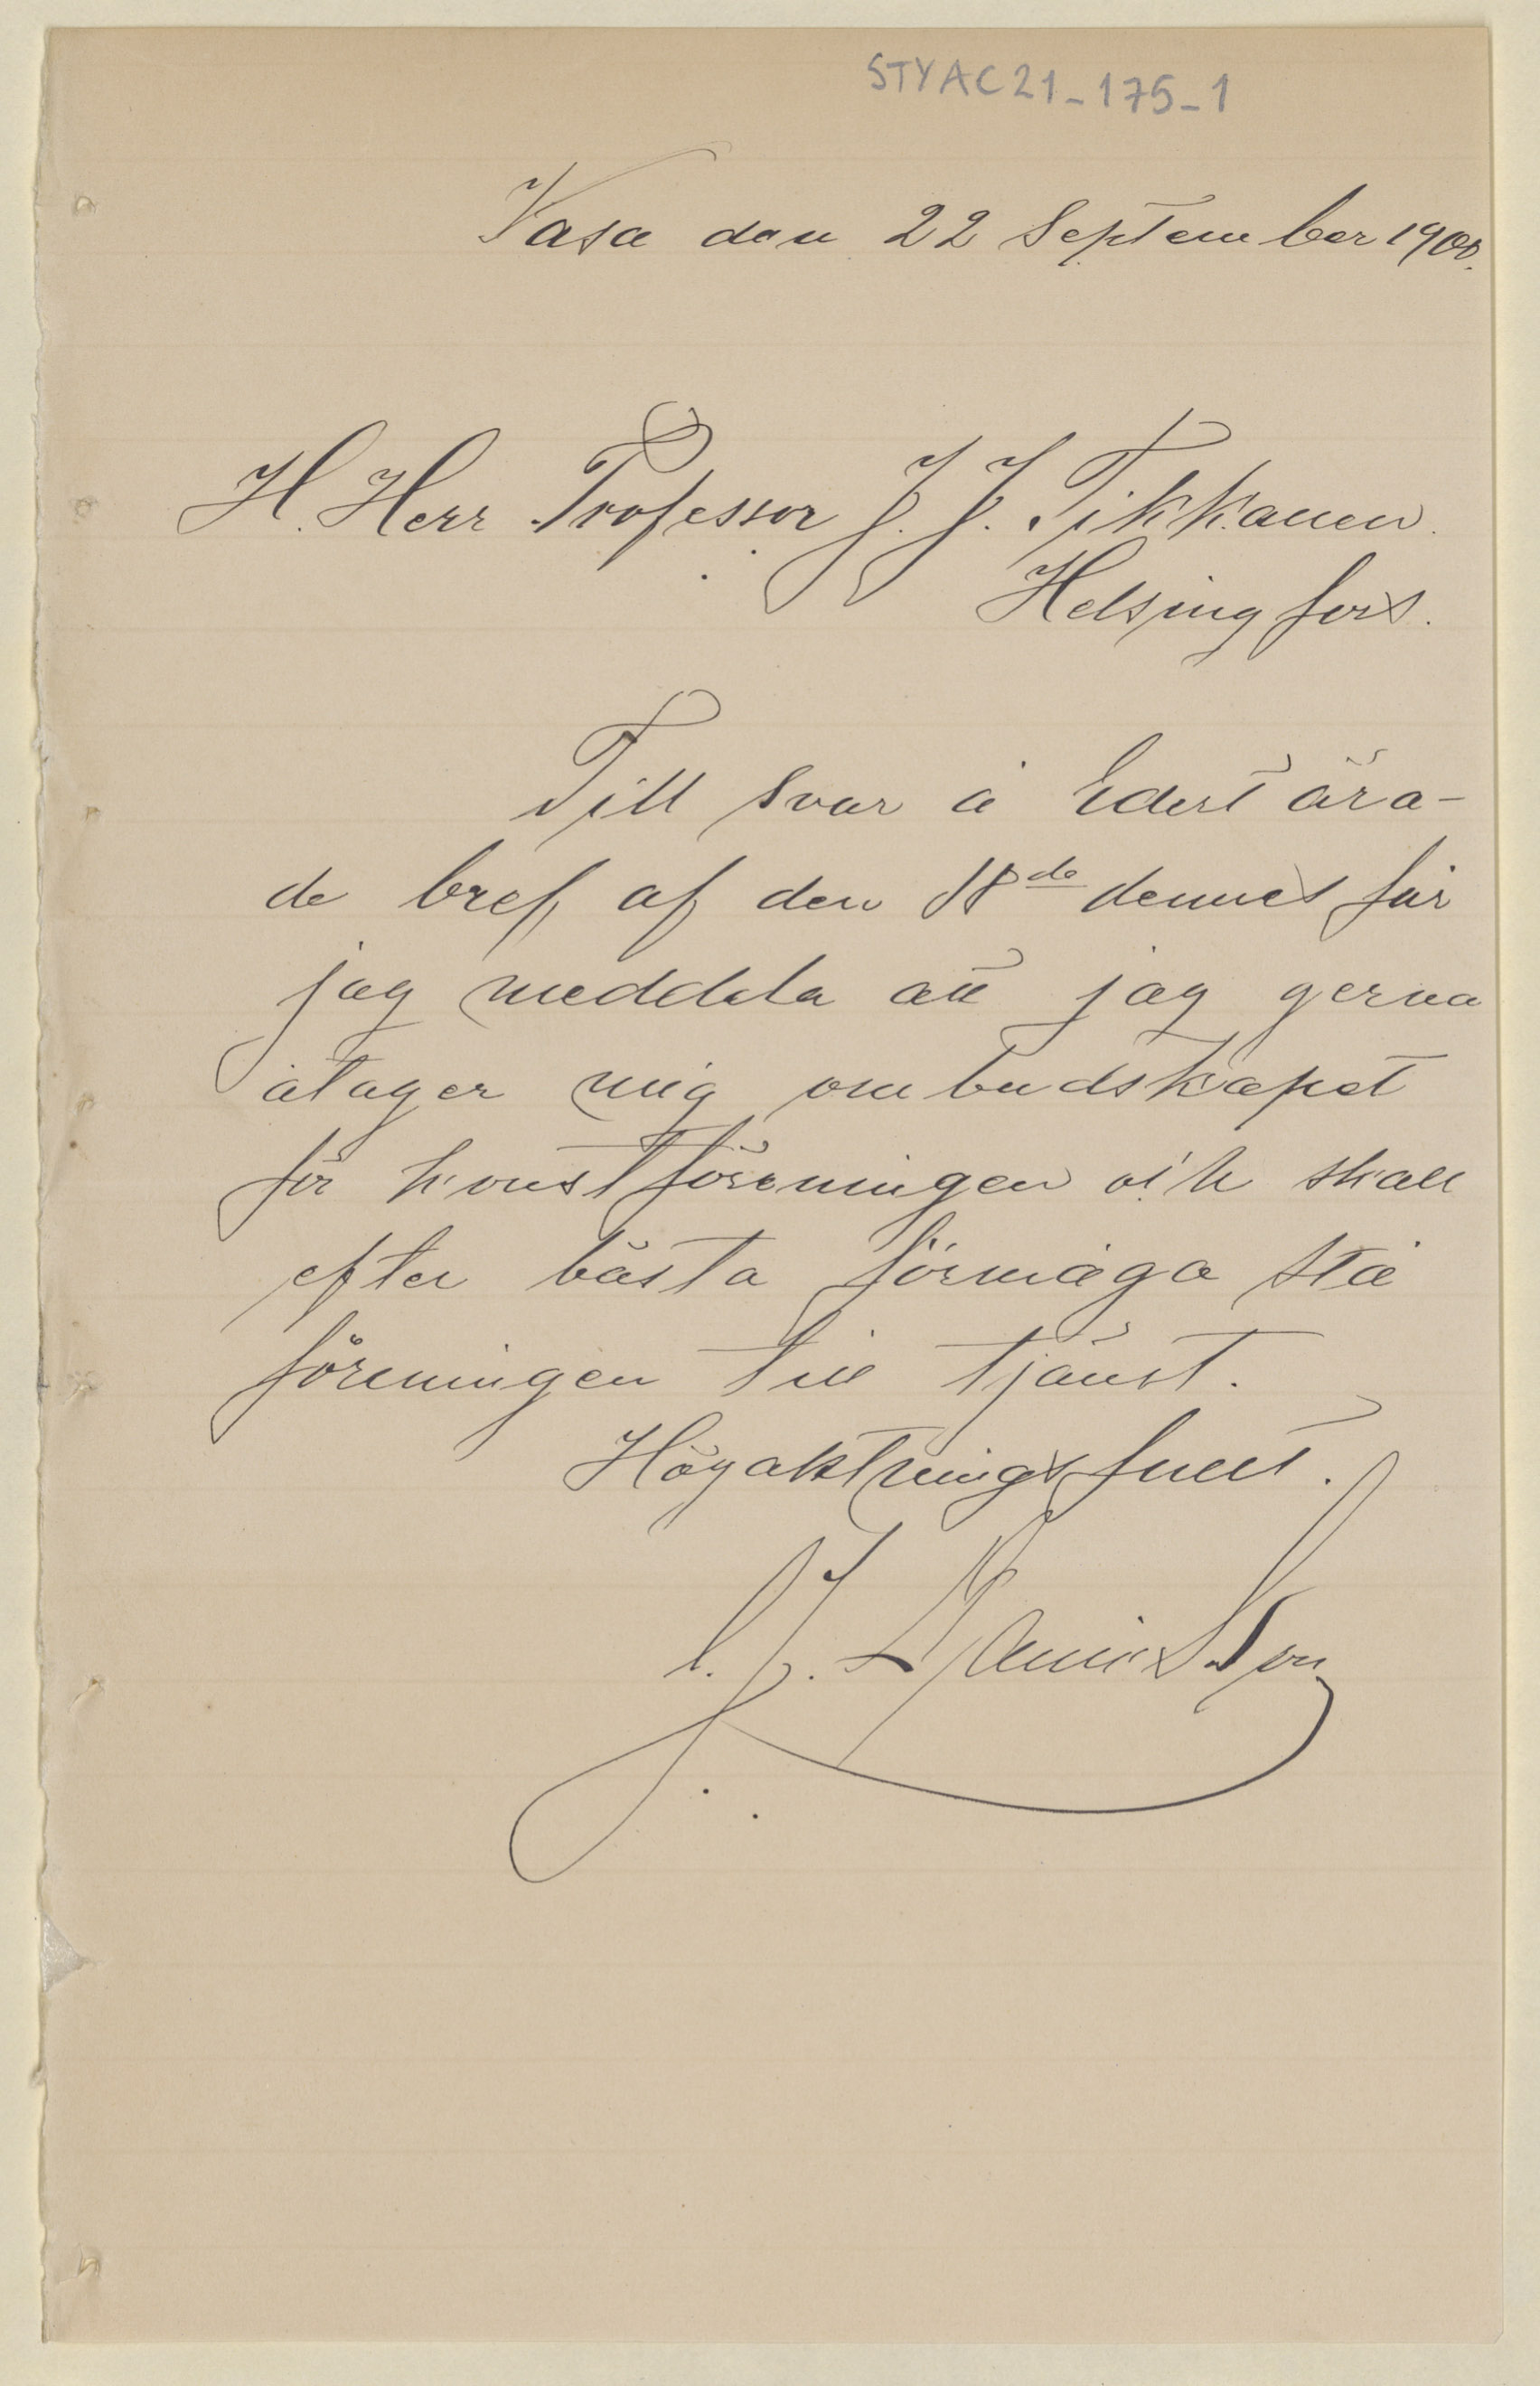 STYAC21-175-1
Vasa den 22 September 1900.
H. Herr Professor J. J. Tikkanen.
Helsingfors.
Till svar å Edert ära-
de bref af den 18de dennes får
jag meddela att jag gerna
åtager mig ombudskapet
för konstföreningen och skall
efter bästa förmåga stå
föreningen till tjänst.
Högaktningsfullt.
J. Danielson